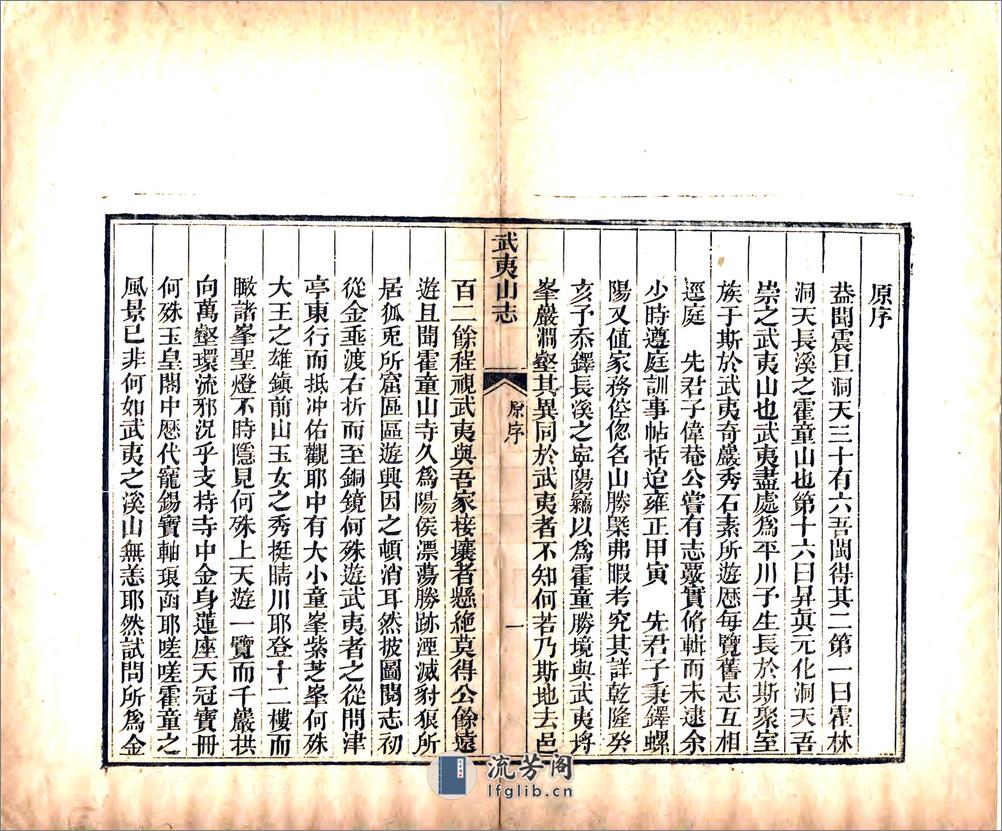 原序
葢聞震旦洞天三十有六吾閩得其二第一曰霍林
洞天長溪之霍童山也第十六曰昇眞元化洞天吾
崇之武夷山也武夷盡處爲平川子生長於斯聚室
族于斯於武夷奇巖秀石素所遊歴每覽舊志互相
逕庭 先君子偉菴公嘗有志覈實脩輯而未逮余
少時遵庭訓事帖括迨雍正甲寅 先君子秉鐸螺
陽又值家務倥偬名山勝槩弗暇考究其詳乾隆癸
亥予忝鐸長溪之寧陽竊以爲霍童勝境與武夷埒
峯巖澗壑其異同於武夷者不知何若乃斯地去邑
武夷山志
原序
一
百二餘程視武夷與吾家棱壤者懸絶莫得公餘遠
遊且聞霍童山寺久爲陽侯漂蕩勝跡湮滅豺狼所
居狐兎所窟區區遊興因之頓消耳然披圖閱志初
從金乖渡右折而至銅鏡何殊遊武夷者之從問津
亭東行而抵冲佑觀耶中有大小童峯紫芝峯何殊
大王之雄鎮前山玉女之秀挺晴川耶登十二樓而
瞰諸峯聖燈不時隱見何殊上天遊一覽而千巖拱
向萬壑環流邪況乎支持寺中金身蓮座天冠寶冊
何殊玉皇閣中歴代寵錫寶軸琅函耶嗟嗟霍童之
風景已非何如武夷之溪山無恙耶然試問所爲金
流芳阁
lfglib.cn